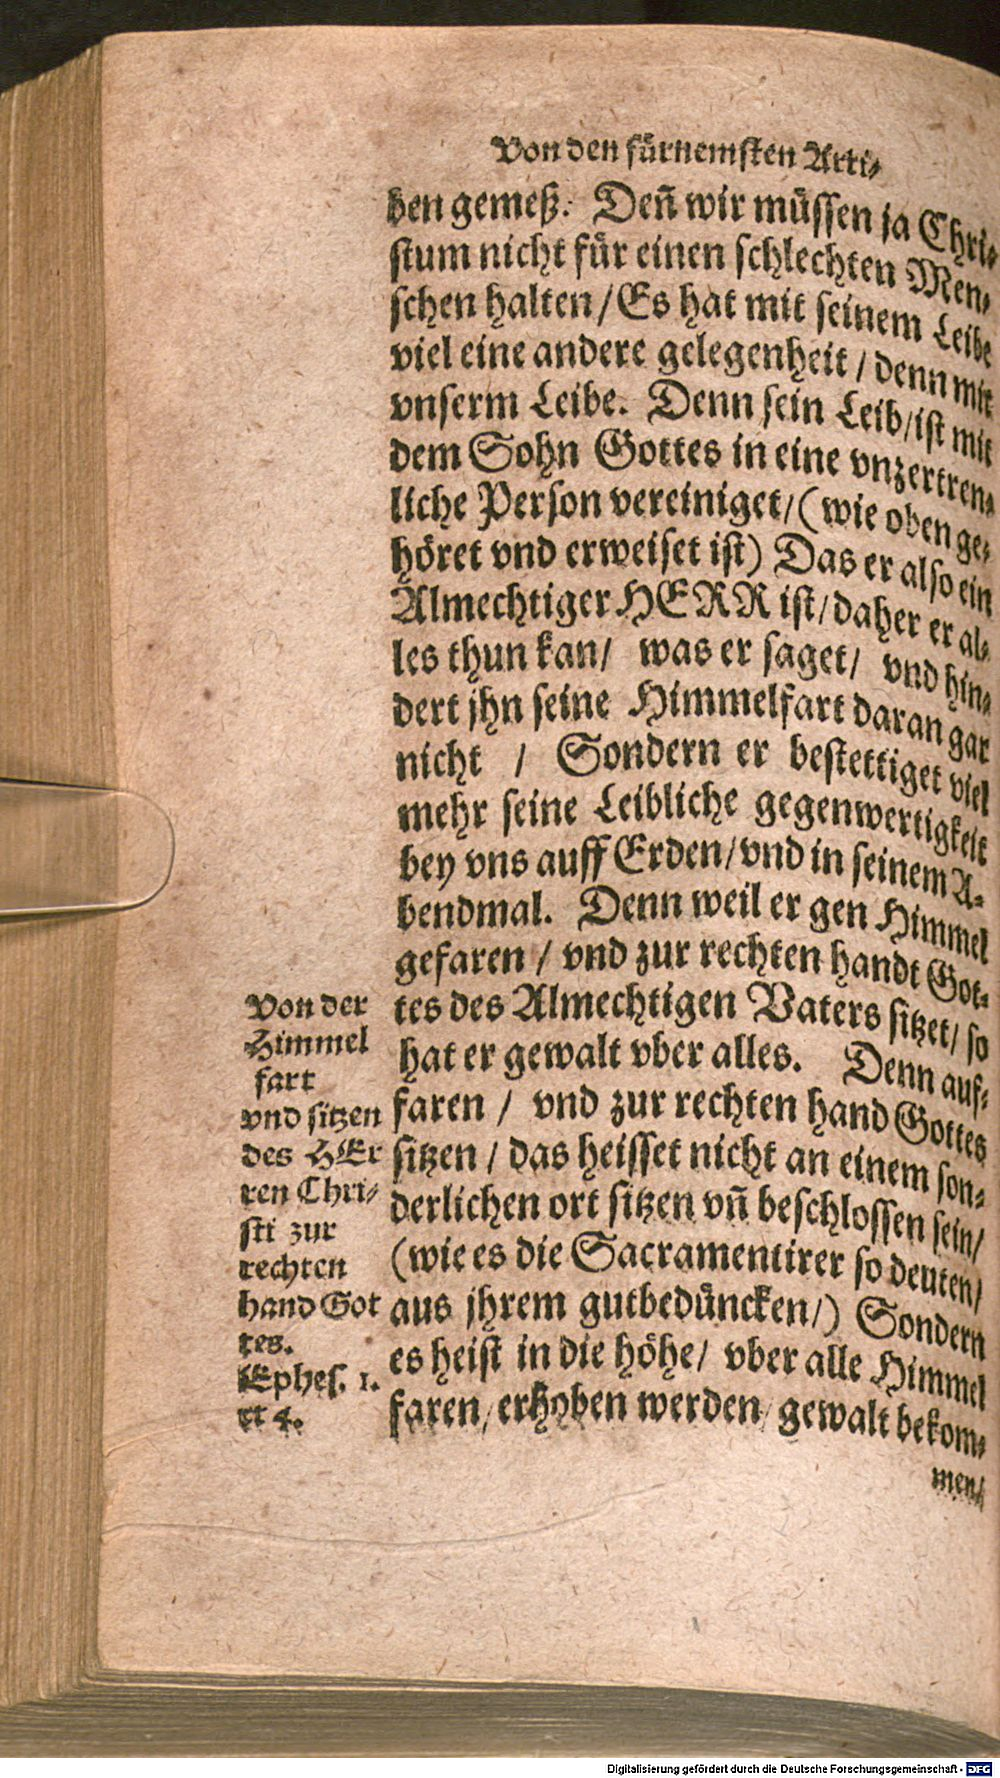 Von den fürnemsten Arti⸗
ben gemeß. Deñ wir müssen ja Chri⸗
stum nicht für einen schlechten Men⸗
schen halten / Es hat mit seinem Leibe
viel eine andere gelegenheit / denn mit
vnserm Leibe. Denn sein Leib / ist mit
dem Sohn Gottes in eine vnzertren⸗
liche Person vereiniget / (wie oben ge⸗
höret vnd erweiset ist) Das er also ein
Almechtiger HERR ist / daher er al⸗
les thun kan / was er saget / vnd hin⸗
dert jhn seine Himmelfart daran gar
nicht / Sondern er bestettiget viel
mehr seine Leibliche gegenwertigkeit
bey vns auff Erden / vnd in seinem A⸗
bendmal. Denn weil er gen Himmel
gefaren / vnd zur rechten handt Got⸗
tes des Almechtigen Vaters sitzet / so
hat er gewalt vber alles. Denn auf⸗
faren / vnd zur rechten hand Gottes
sitzen / das heisset nicht an einem son⸗
derlichen ort sitzen vñ beschlossen sein /
(wie es die Sacramentirer so deuten /
aus jhrem gutbedüncken /) Sondern
es heist in die höhe / vber alle Himmel
faren / erhoben werden / gewalt bekom⸗
men /
Von der
Himmel
fart
vnd sitzen
des HEr
ren Chri⸗
sti zur
rechten
hand Got
tes.
Ephes. 1.
et 4.
Digitalisierung gefördert durch die Deutsche Forschungsgemeinschaft - DFG